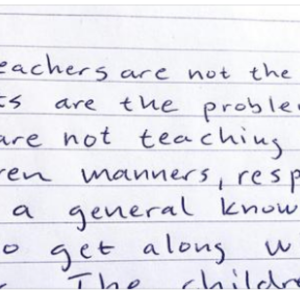 eachers are not the
ts are the proble
are not teaching
ren manners, resp
a general know
o get along w
The childr